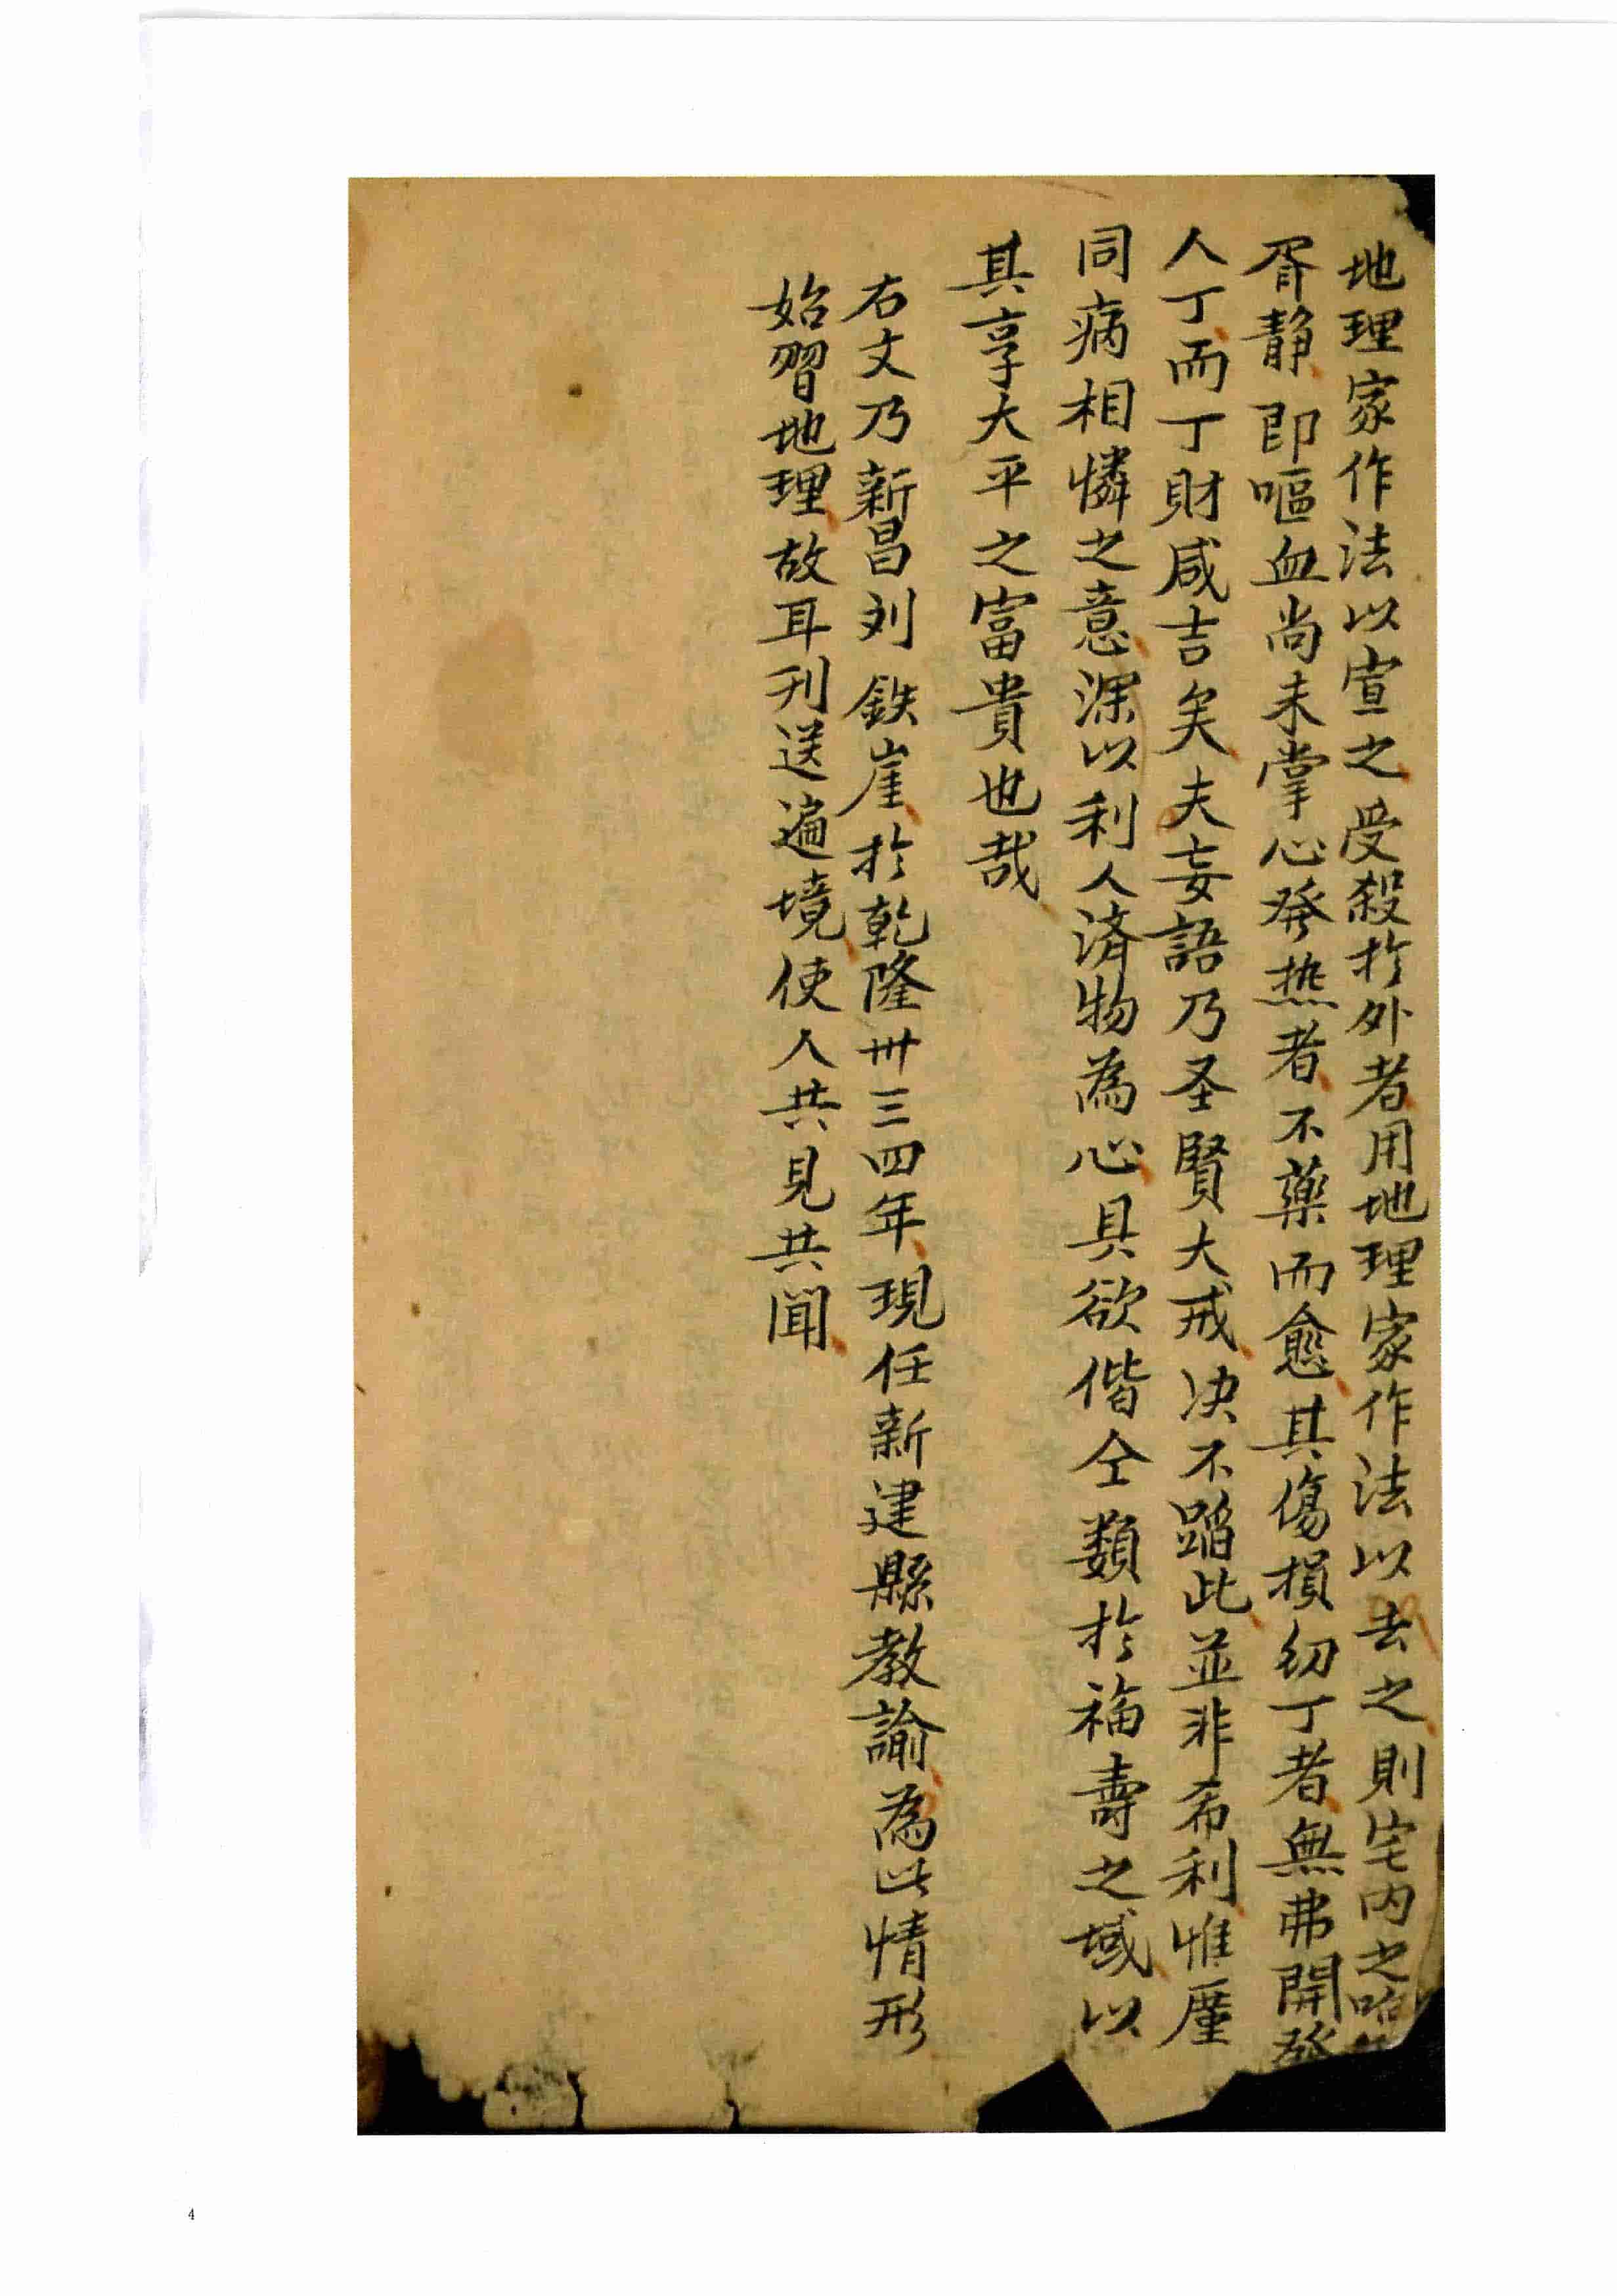 地理家作法以宣之受殺於外者用地理家作法以去之則宅内之
胥静即嘔血尚未掌心發热者不藥而愈其傷損幼丁者無弗開發
人丁而丁財咸吉矣夫妄語乃圣賢大戒决不蹈此並非希利惟廑
同病相憐之意深以利人済物為心具欲偕仝類於福壽之域以
其享大平之富貴也哉
右文乃新昌刘鉄崖於乾隆卅三四年現任新建縣教諭為此情形
始習地理故耳刋送遍境使人共見共聞
4